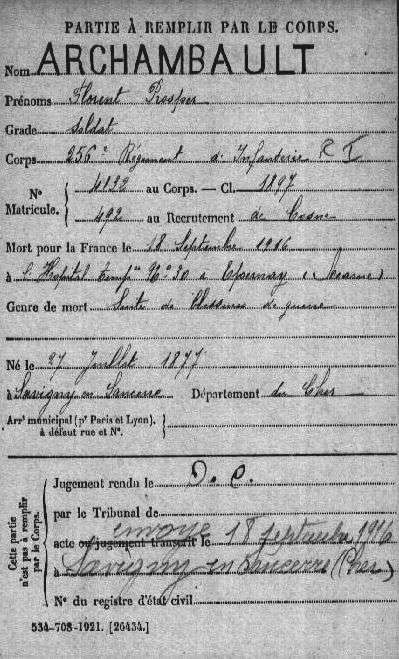 PARTIE À REMPLIR PAR LE CORPS.
Nom ARCHAMBAULT
Prénoms Florent Prosper
Grade soldat
Corps 256e Régiment d'Infanterie R I
No Matricule. 4822 au Corps. — Cl. 1897
492 au Recrutement de Cosne
Mort pour la France le 18 Septembre 1916
à l'Hopital Temp.re No 30 à Epernay (Marne)
Genre de mort Suite de Blessures de guerre
Né le 27 Juillet 1877
à Savigny en Sancerre Département du Cher
Arrt municipal (pr Paris et Lyon), à défaut rue et No.
Cette partie n'est pas à remplir par le Corps.
Jugement rendu le D. C.
par le Tribunal de
acte ou jugement transcrit le envoyé 18 septembre 1916
à Savigny en Sancerre (Cher)
No du registre d'état civil
534-708-1921. [26434.]